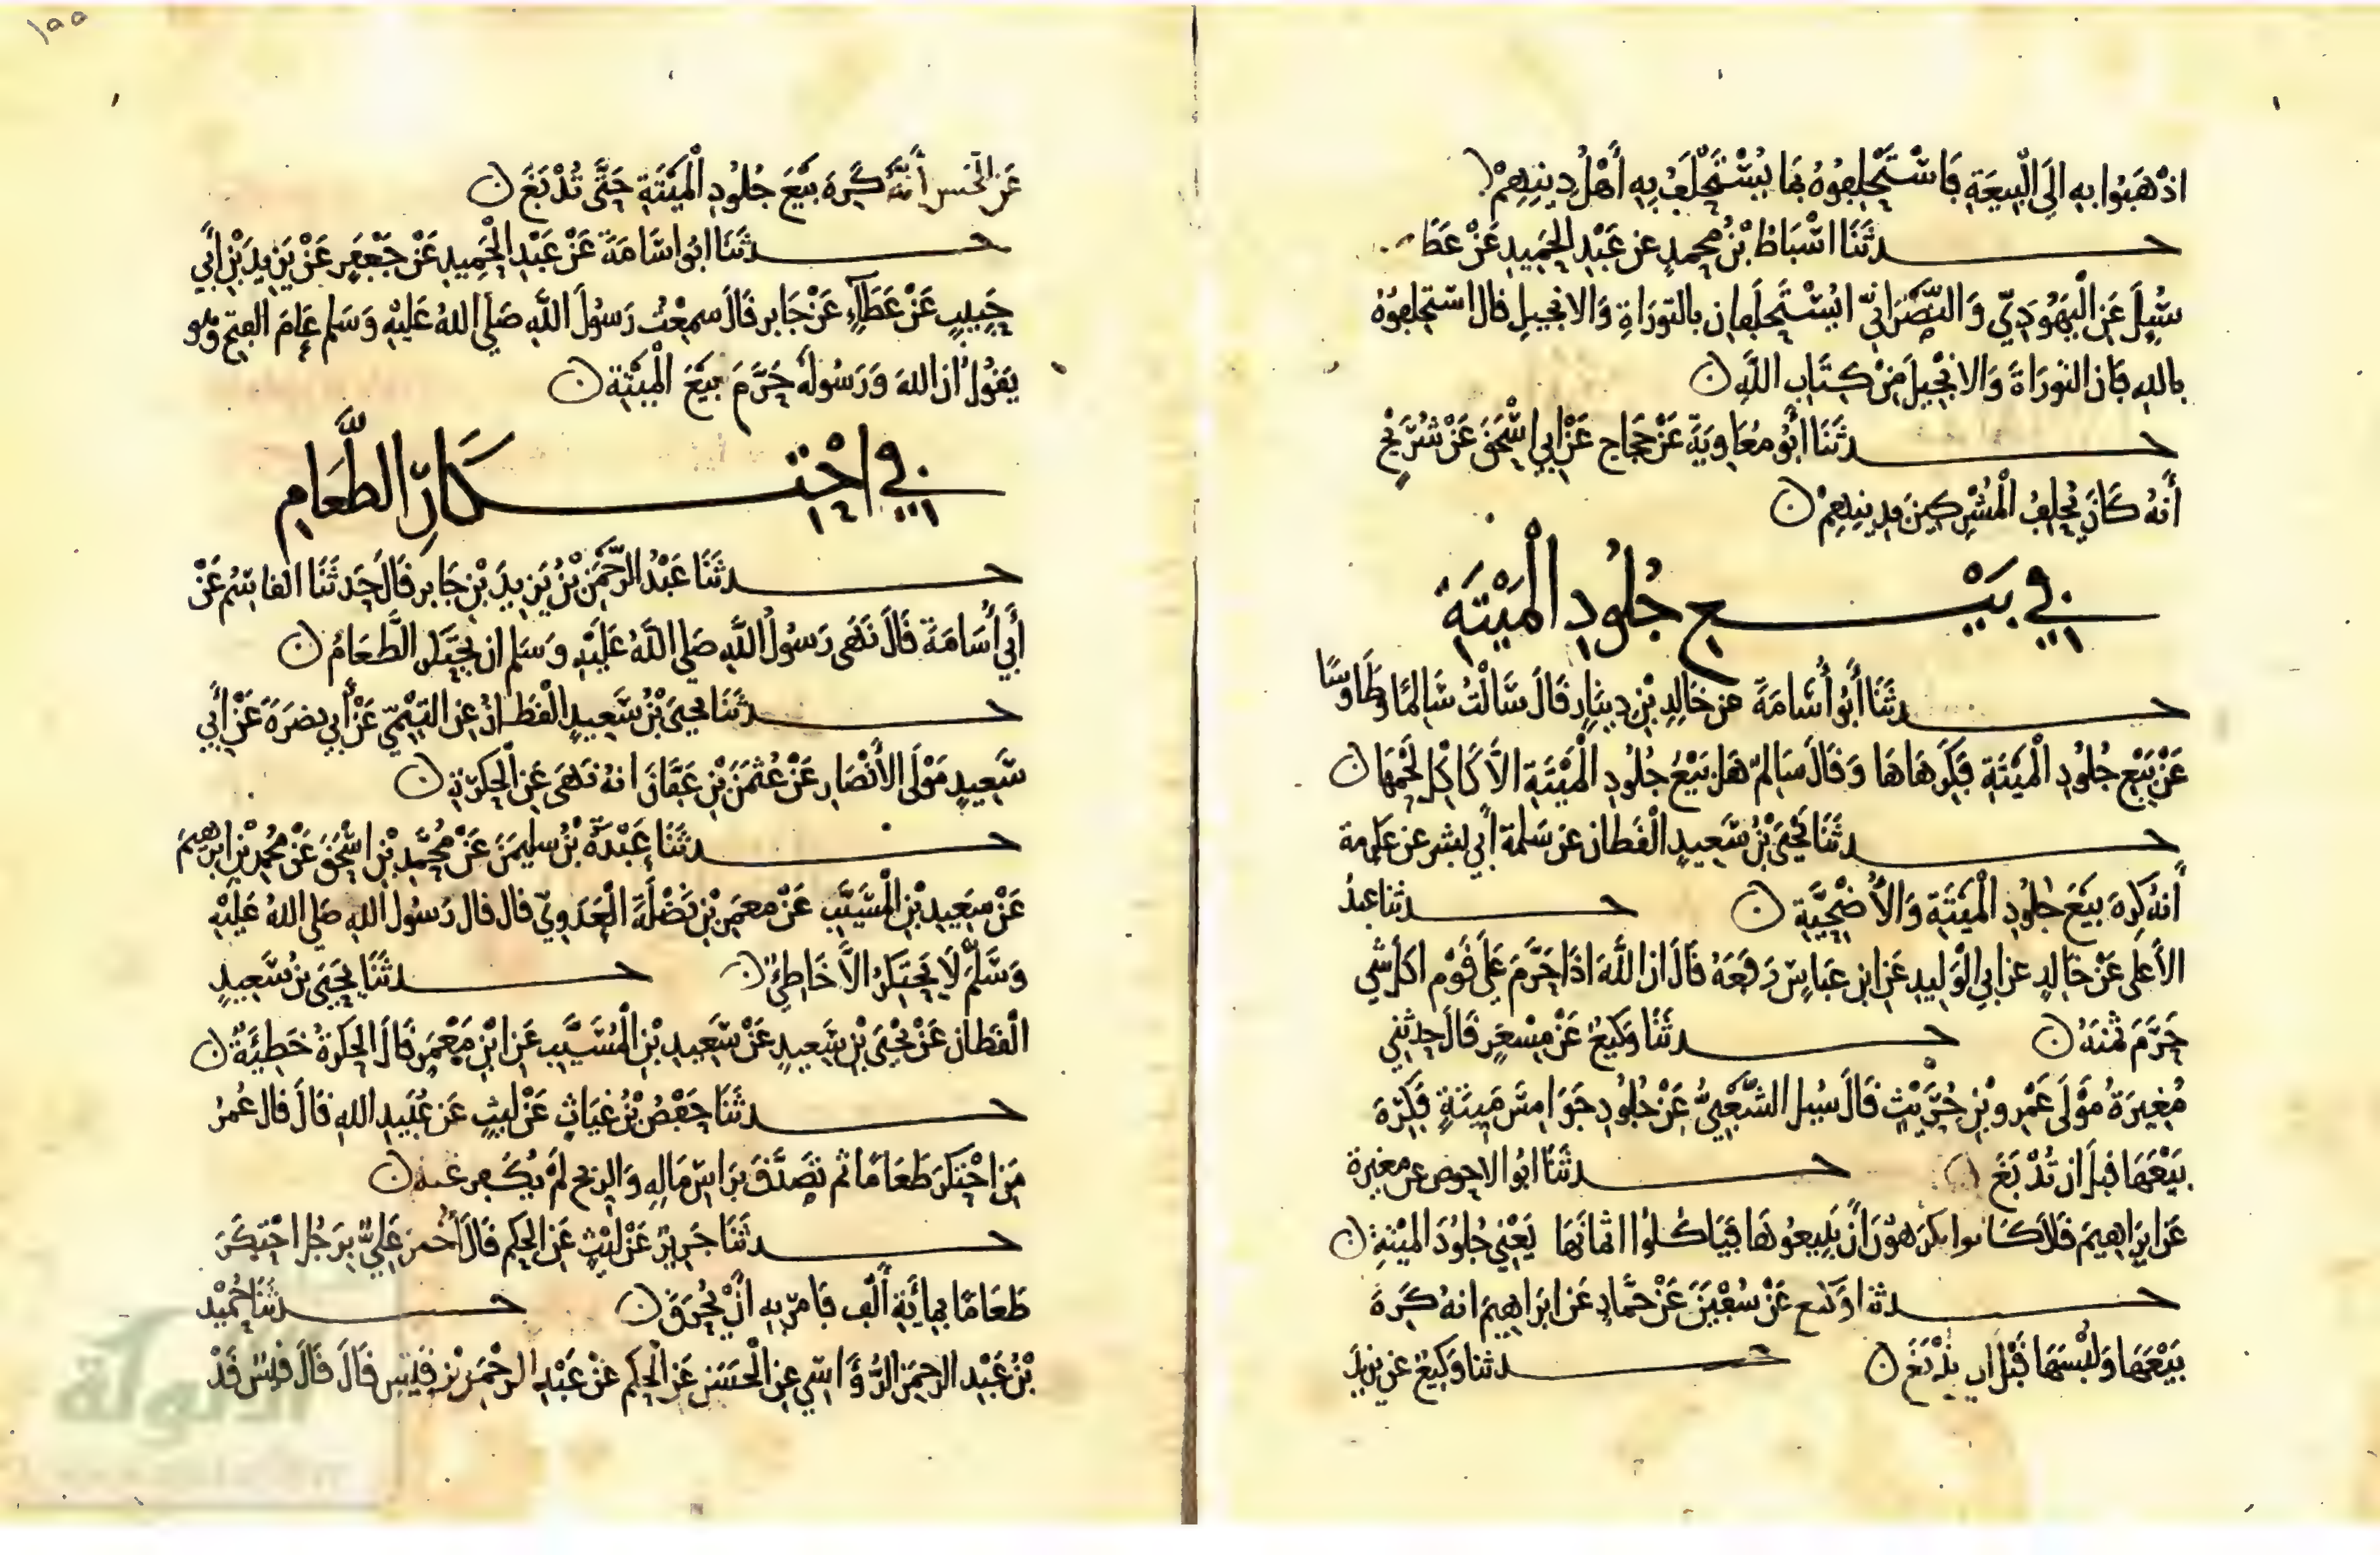 اذهبوا به الى البيعة فاستحلفوه بما يستحلف به أهل دينهم
حدثنا اسباط بن محمد عن عبد الحميد عن عطا
سئل عن اليهودي والنصراني ايستحلفان بالتوراة والانجيل قال استحلفوه
بالله فان التوراة والانجيل من كتاب الله ن
حدثنا أبو معاوية عن حجاج عن ابي اسحق عن شريح
أنه كان يحلف المشركين بدينهم ن
في بيع جلود الميتة
حدثنا أبو أسامة عن خالد بن دينار قال سالت سالما وطاوسا
عن بيع جلود الميتة فكرهاها وقال سالم هل بيع جلود الميتة الا كاكل لحمها ن
حدثنا يحيى بن سعيد القطان عن سلمة أبي بشر عن عكرمة
أنه كره بيع جلود الميتة والأضحية ن حدثنا عبد
الأعلى عن خالد عن ابي الوليد عن ابن عباس رفعه قال ان الله اذا حرم على قوم اكل شي
حرم ثمنه ن حدثنا وكيع عن مسعر قال حدثني
مغيرة مولى عمرو بن حريث قال سئل الشعبي عن جلود ميتة فكره
بيعها قبل ان تدبغ ن حدثنا ابو الاحوص عن مغيرة
عن ابراهيم قال كانوا يكرهون أن يبيعوها فياكلوا اثمانها يعني جلود الميتة ن
حدثنا وكيع عن سفين عن حماد عن ابراهيم انه كره
بيعها ولبسها قبل ان تدبغ ن حدثنا وكيع عن يزيد
١٥٥
عن الحسن أنه كره بيع جلود الميتة حتى تدبغ ن
حدثنا ابو اسامة عن عبد الحميد عن جعفر عن يزيد بن أبي
حبيب عن عطاء عن جابر قال سمعت رسول الله صلى الله عليه وسلم عام الفتح وهو
يقول ان الله ورسوله حرم بيع الميتة ن
في احتكار الطعام
حدثنا عبد الرحمن بن يزيد بن جابر قال حدثنا القاسم عن
أبي أسامة قال نهى رسول الله صلى الله عليه وسلم ان يحتكر الطعام ن
حدثنا يحيى بن سعيد القطان عن التيمي عن أبي نضرة عن أبي
سعيد مولى الأنصار عن عثمن بن عفان انه نهى عن الحكرة ن
حدثنا عبدة بن سليمن عن محمد بن اسحق عن محمد بن ابرهيم
عن سعيد بن المسيب عن معمر بن نضلة العدوي قال قال رسول الله صلى الله عليه
وسلم لا يحتكر الا خاطئ ن حدثنا يحيى بن سعيد
القطان عن يحيى بن سعيد عن سعيد بن المسيب عن ابن معمر قال الحكرة خطيئة ن
حدثنا حفص بن غياث عن ليث عن عبيد الله قال قال عمر
من احتكر طعاما ثم تصدق براس ماله والربح لم يكفر عنه ن
حدثنا جرير عن ليث عن الحكم قال أخبر علي برجل احتكر
طعاما بمائة ألف فامر به أن يحرق ن حدثنا حميد
بن عبد الرحمن الرؤاسي عن الحسن عن الحكم عن عبد الرحمن بن قيس قال قال قيس قد